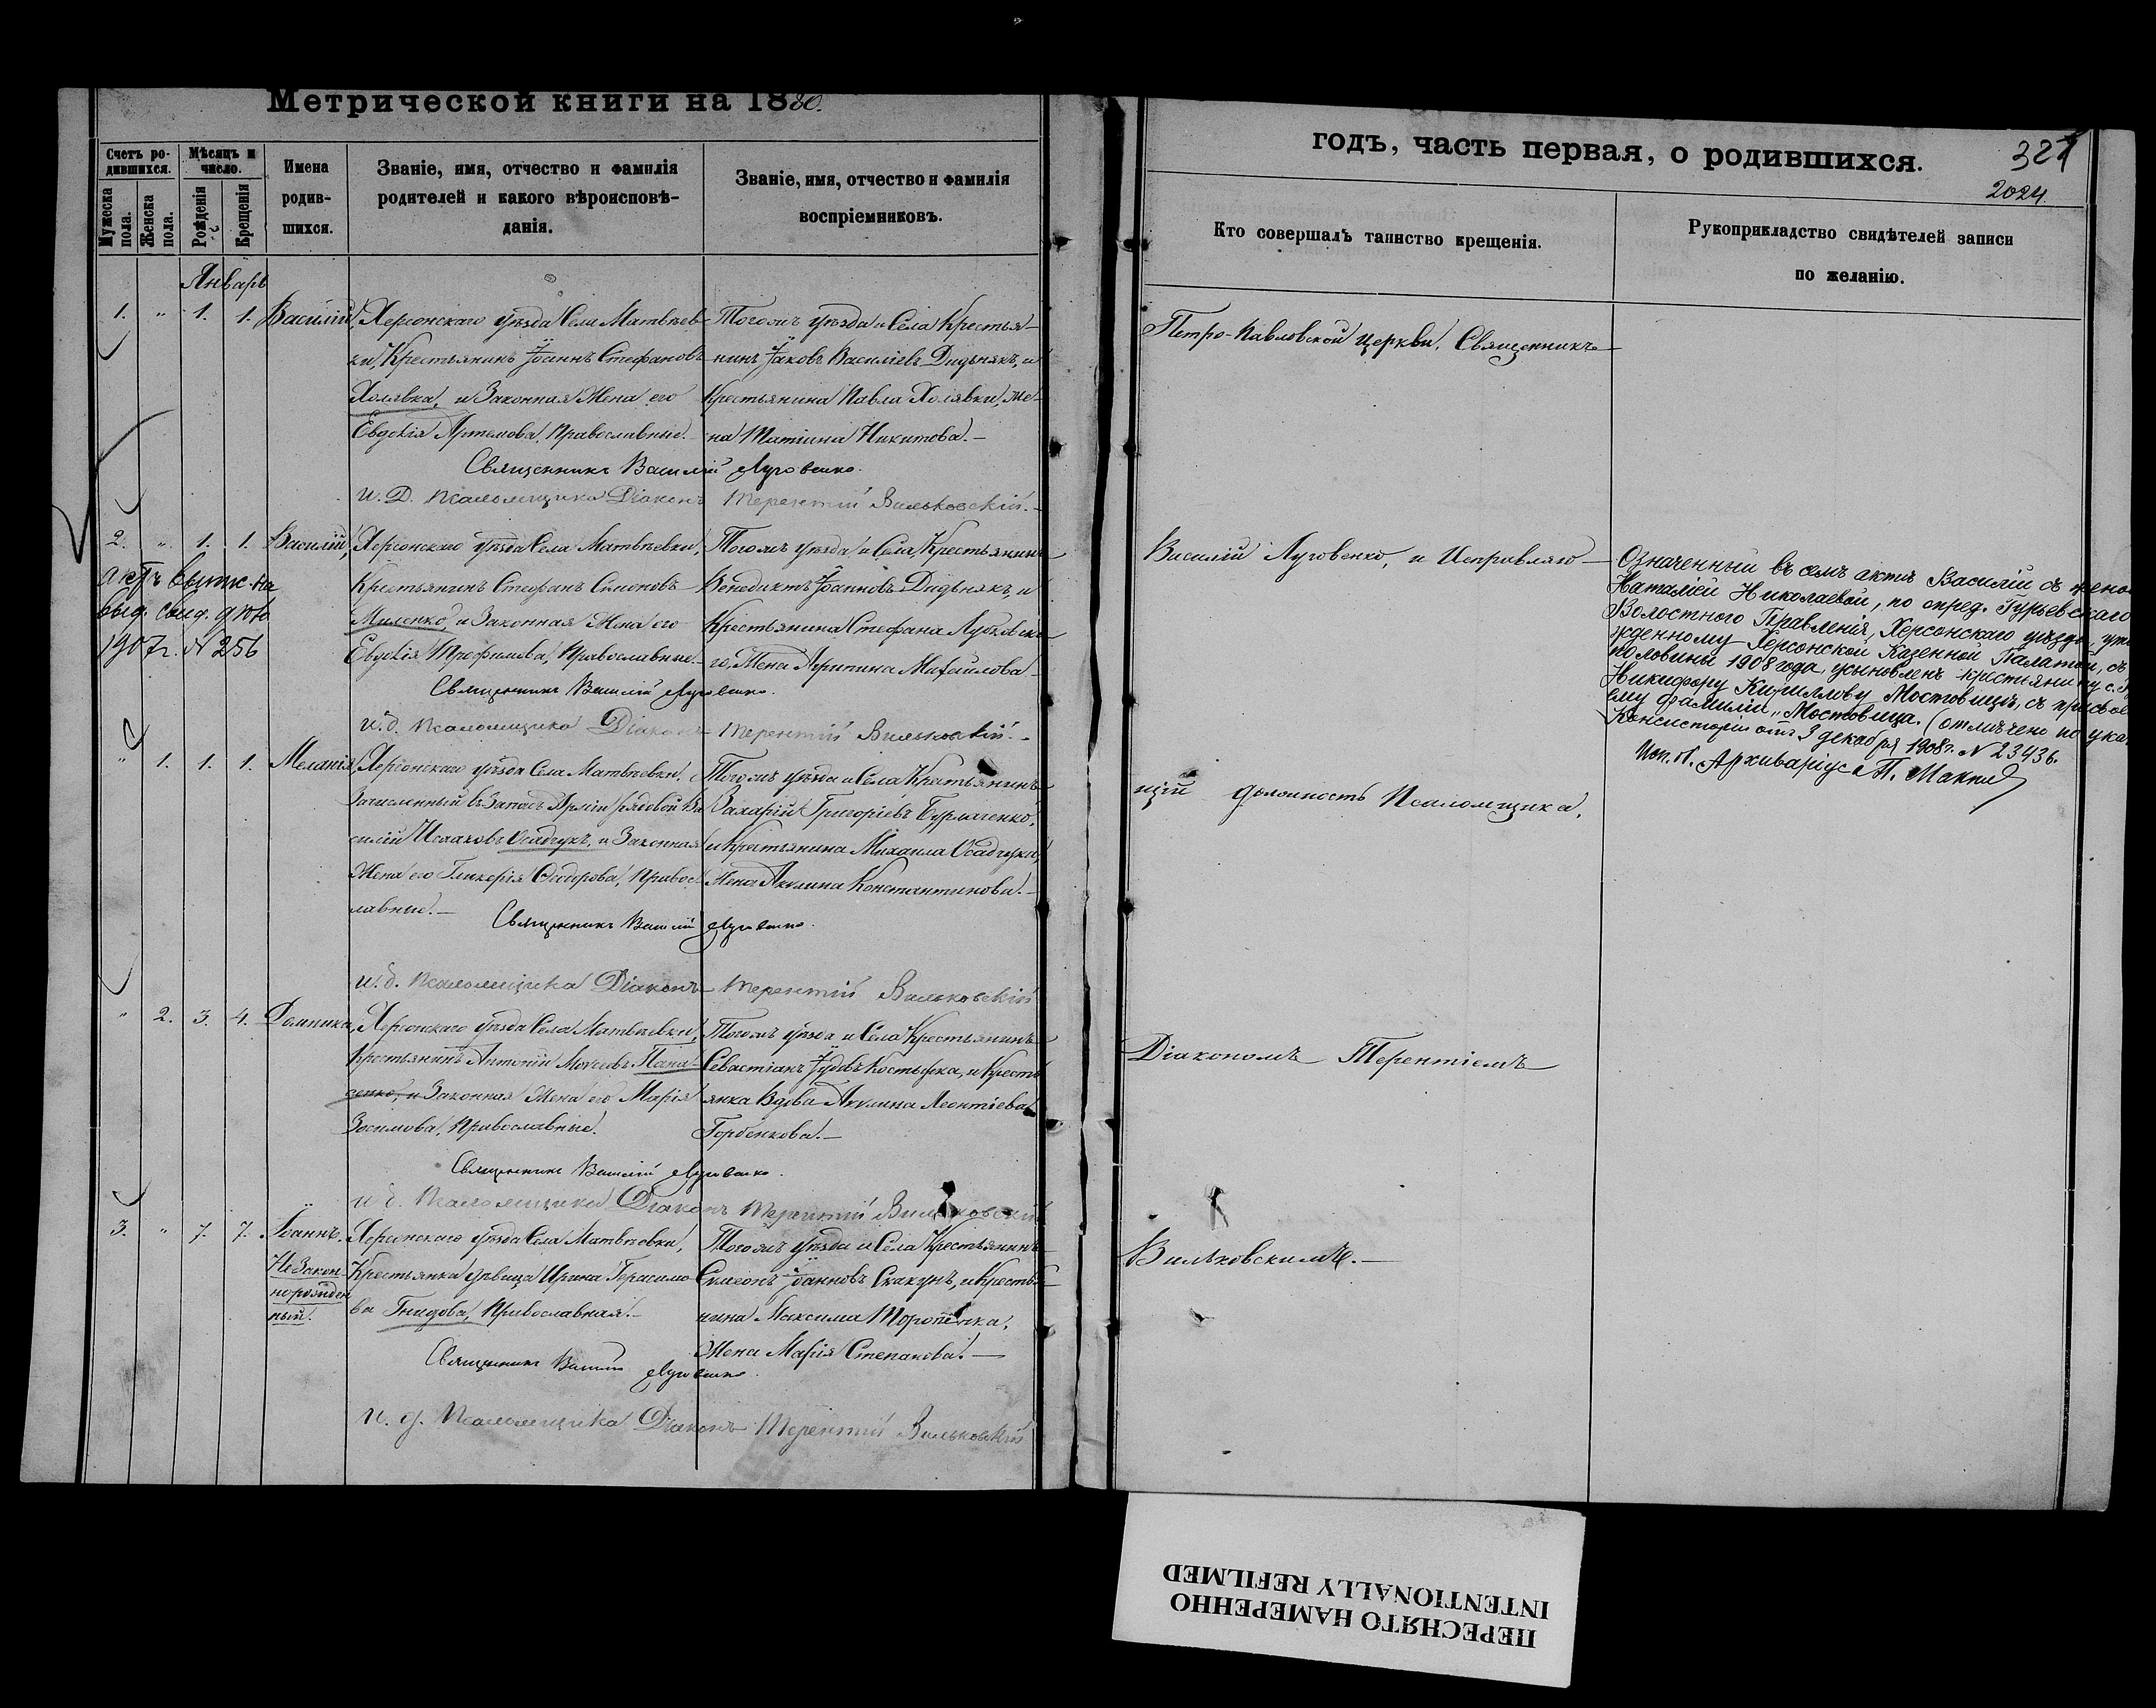 Метрической книги на 1880.
Счетъ ро-
дившихся.
Мужеска пола.
Женска пола.
Мѣсяцъ и
число.
Рожденія
Крещенія
Имена
родив-
шихся.
Званіе, имя, отчество и фамилія
родителей и какого вѣроисповѣ-
данія.
Званіе, имя, отчество и фамилія
воспріемниковъ.
Январь
1. " 1. 1. Василій,
Херсонскаго уѣзда Села Матвѣев-
ки, Крестьянинъ Іоаннъ Стефановъ
Холявка, и Законная Жена его
Евдокія Артемова, Православные.
Тогожъ уѣзда и Села Крестья-
нинъ Іаковъ Василіевъ Дидьнякъ, и
Крестьянина Павла Холявки, же-
на Татіана Никитова.-
Священникъ Василій Луговенко.
И. Д. Псаломщика Діаконъ Терентій Вильковскій.-
2. " 1. 1. Василій,
актъ выпис. на
выд. свид. д.
1907 г. N 256
Херсонскаго уѣзда Села Матвѣевки,
Крестьянинъ Стефанъ Симоновъ
Миленко, и Законная Жена его
Евдокія Трофимова, Православные.-
Тогожъ уѣзда и Села Крестьянинъ
Венедиктъ Іоанновъ Дидьнякъ, и
Крестьянина Стефана
Жена Агрипина Михайлова
Священникъ Василій Луговенко.
И. д. Псаломщика Діаконъ Терентій Вильковскій.-
" 1. 1. 1. Меланія,
Херсонскаго уѣзда Села Матвѣевки,
Зачисленный въ Запасъ Арміи рядовой Ва-
силій Исааковъ Осадчукъ, и Законная
Жена его Гликерія Ѳедорова, Правос-
лавные.-
Тогожъ уѣзда и Села Крестьянинъ
Захарій Григоріевъ Бурлаченко,
и Крестьянина Михаила Осадчука,
Жена Акулина Константинова.-
Священникъ Василій Луговенко.
И. д. Псаломщика Діаконъ Терентій Вильковскій
" 2. 3. 4. Домника,
Херсонскаго уѣзда Села Матвѣевки,
Крестьянинъ Антоній Моѵсеевъ Пана-
сенко, и Законная Жена его Марія
Зосимова, Православные.
Тогожъ уѣзда и Села Крестьянинъ
Севастіанъ Іудовъ Костырка, и Кресть-
янка Вдова Акулина Леонтіева
Горбенкова.-
Священникъ Василій Луговенко.
И. д. Псаломщика Діаконъ Терентій Вильковскій
3. " 7. 7. Іоаннъ.
Незакон-
норожден-
ный.
Херсонскаго уѣзда Села Матвѣевки,
Крестьянка дѣвица Ирина Герасимо-
ва Гнидова, Православная.-
Тогожъ уѣзда и Села Крестьянинъ
Симеонъ Іоанновъ Скакунъ, и Крестья-
нина Максима
Жена Марія Степанова.-
Священникъ Василій Луговенко.
И. д. Псаломщика Діаконъ Терентій Вильковскій
годъ, часть первая, о родившихся.
327
2024.
Кто совершалъ таинство крещенія.
Рукоприкладство свидѣтелей записи
по желанію.
Петро-Павловской церкви, Священникъ
Василій Луговенко, и Исправляю-
щій должность Псаломщика,
Діакономъ Терентіемъ
Вильковскимъ.-
Означенный въ семъ актѣ Василій съ жено
Наталіей Николаевой, по опред. Гурьевскаго
Волостного Правленія, Херсонскаго уѣзда, утв
жденному Херсонской Казенной Палатой, съ
половины 1908 года, усыновленъ крестьянину с.
Никифору Кириллову Мостовицѣ, съ присвое
ему фамиліи „Мостовица. (отмѣчено по ука
Консисторіи отъ 3 декабря 1908 г. N 23436.
Архиваріуса П.
ПЕРЕСНЯТО НАМЕРЕННО
INTENTIONALLY REFILMED